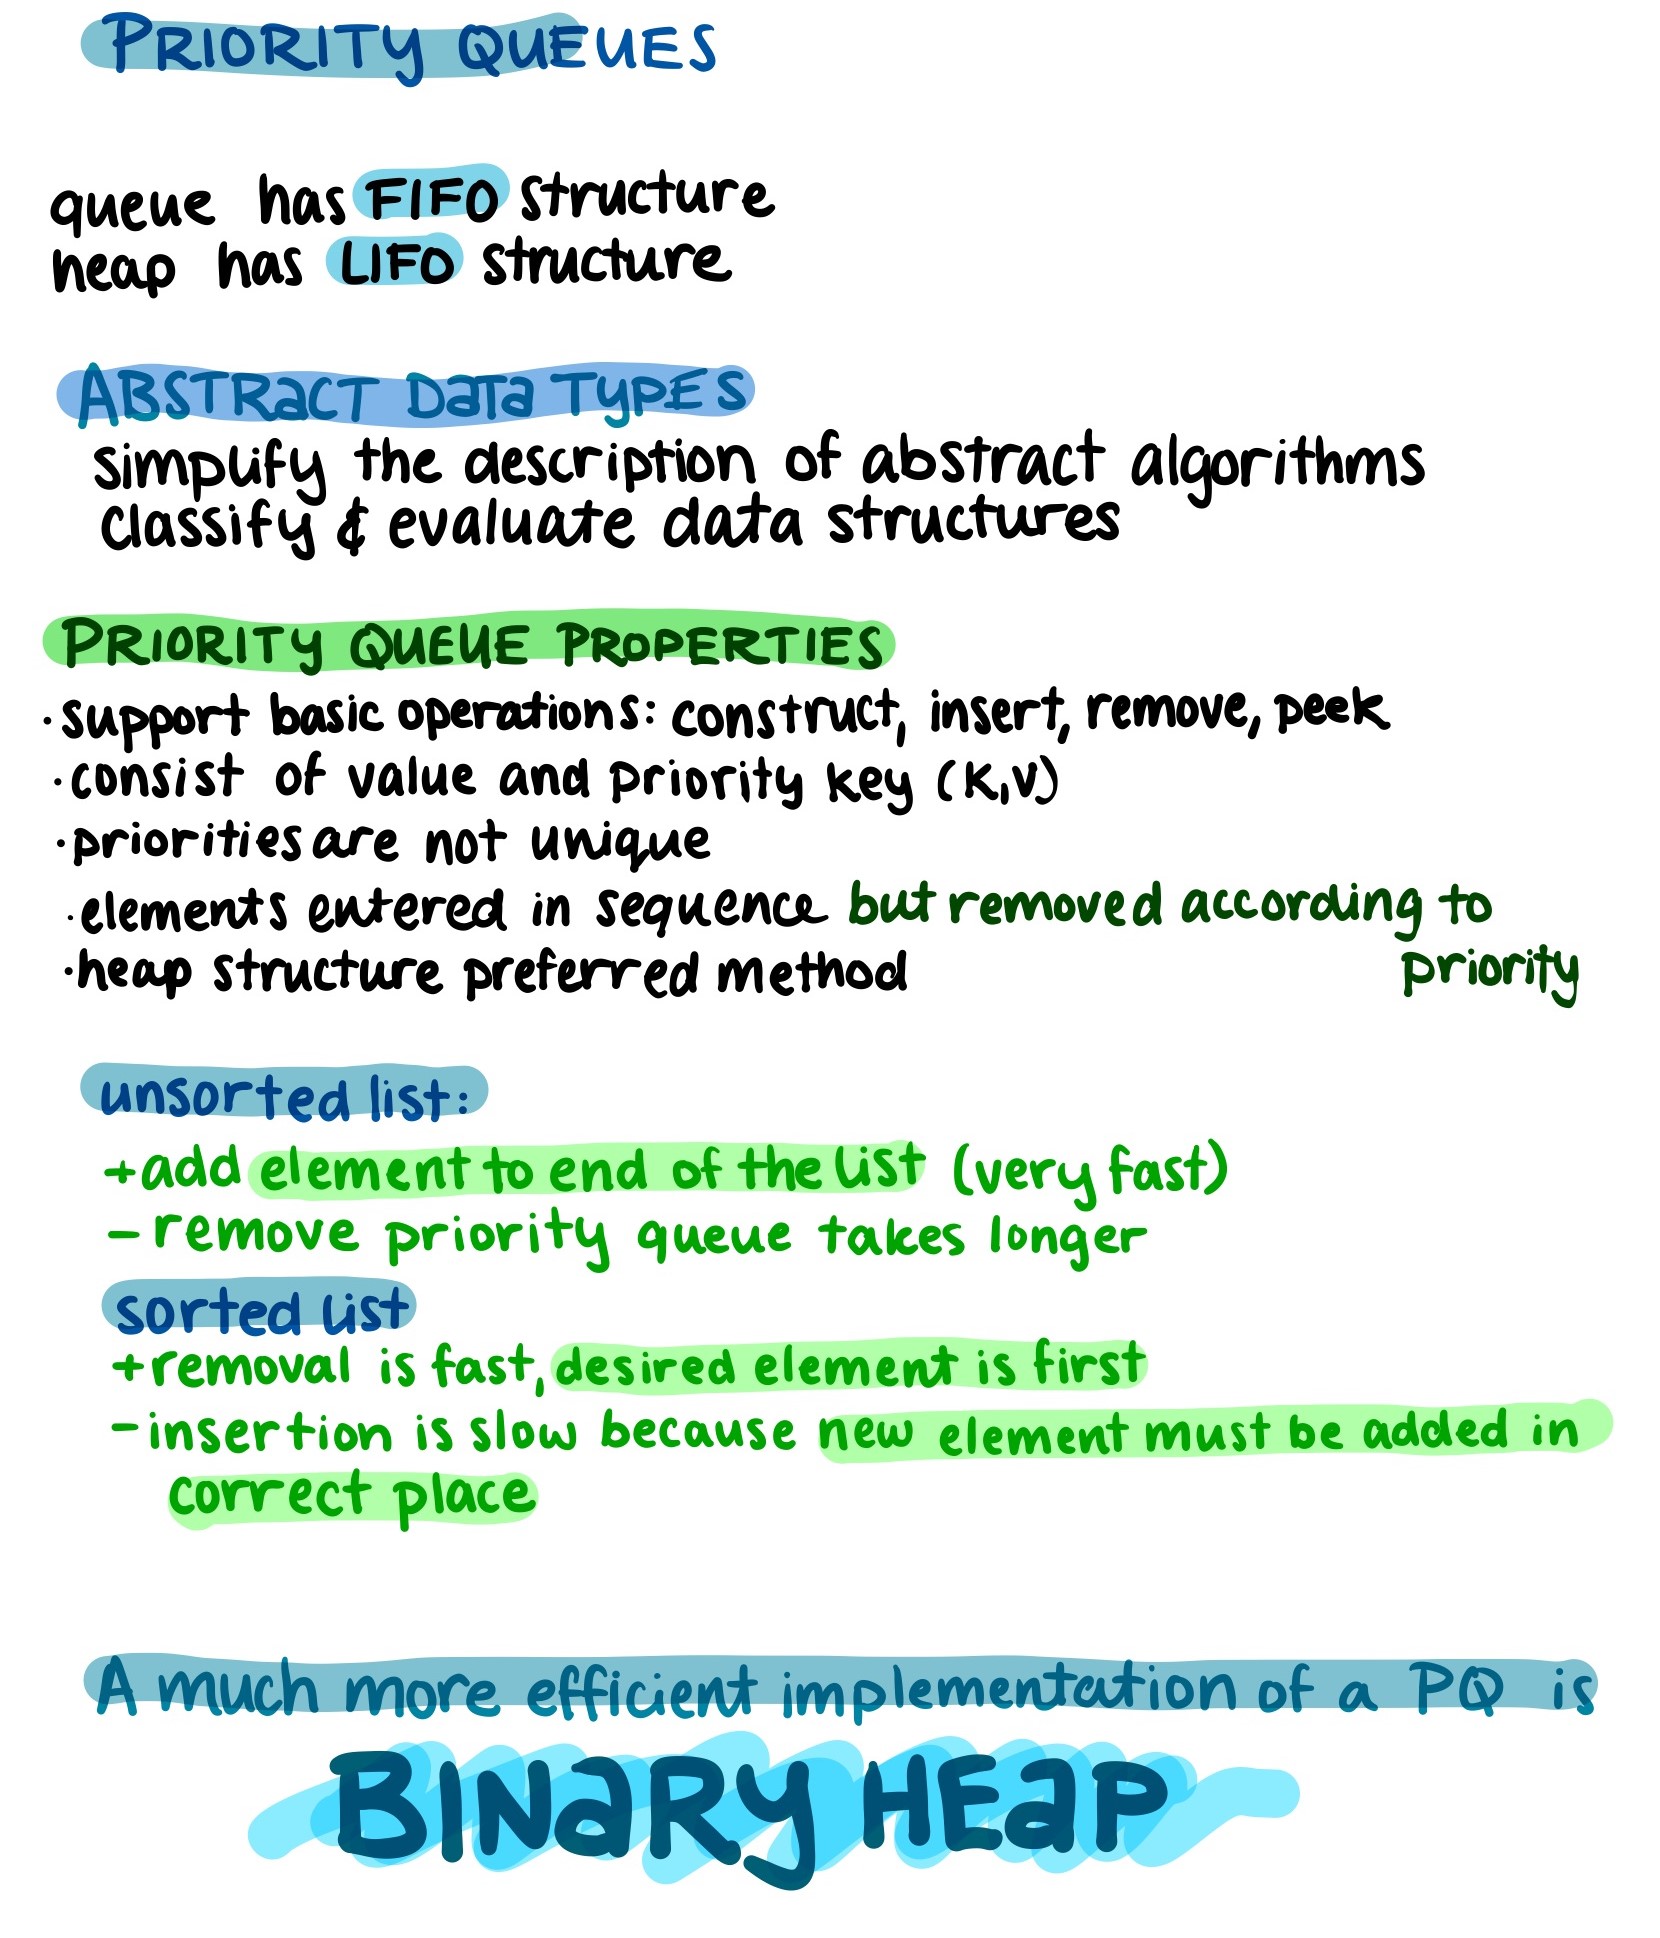 PRIORITY QUEUES
queue has FIFO structure
heap has LIFO structure
ABSTRACT DATA TYPES
simplify the description of abstract algorithms
classify & evaluate data structures
PRIORITY QUEUE PROPERTIES
· support basic operations: construct, insert, remove, peek
· consist of value and priority key (K,V)
· priorities are not unique
· elements entered in sequence but removed according to
priority
· heap structure preferred method
unsorted list:
+ add element to end of the list (very fast)
- remove priority queue takes longer
sorted list
+ removal is fast, desired element is first
- insertion is slow because new element must be added in
correct place
A much more efficient implementation of a PQ is
BINARY HEAP